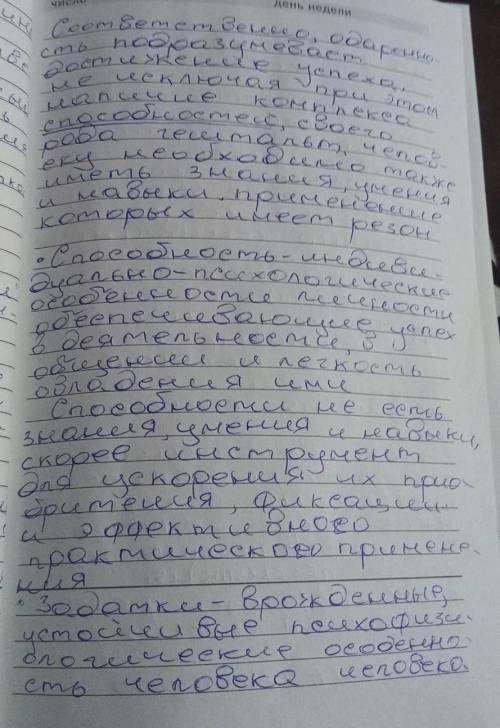 число
день недели
Соответственно, одаренно-
сть подразумевает
достижение успеха,
не исключая при этом
наличие комплекса
способностей, своего
рода гештальт, челов
еку необходимо также
иметь знания, умения
и навыки, применение
которых имеет резон
• Способность - индиви-
дуально-психологические
особенности личности
обеспечивающие успех
в деятельности, в
общении и легкость
овладения ими
Способности не есть
знания, умения и навыки,
скорее инструмент
для ускорения их прио-
бритения, фиксации
и эффективного
практического примене-
ния
• Задатки - врожденные,
устойчивые психофизи-
ологические особенно-
сть человека человека.